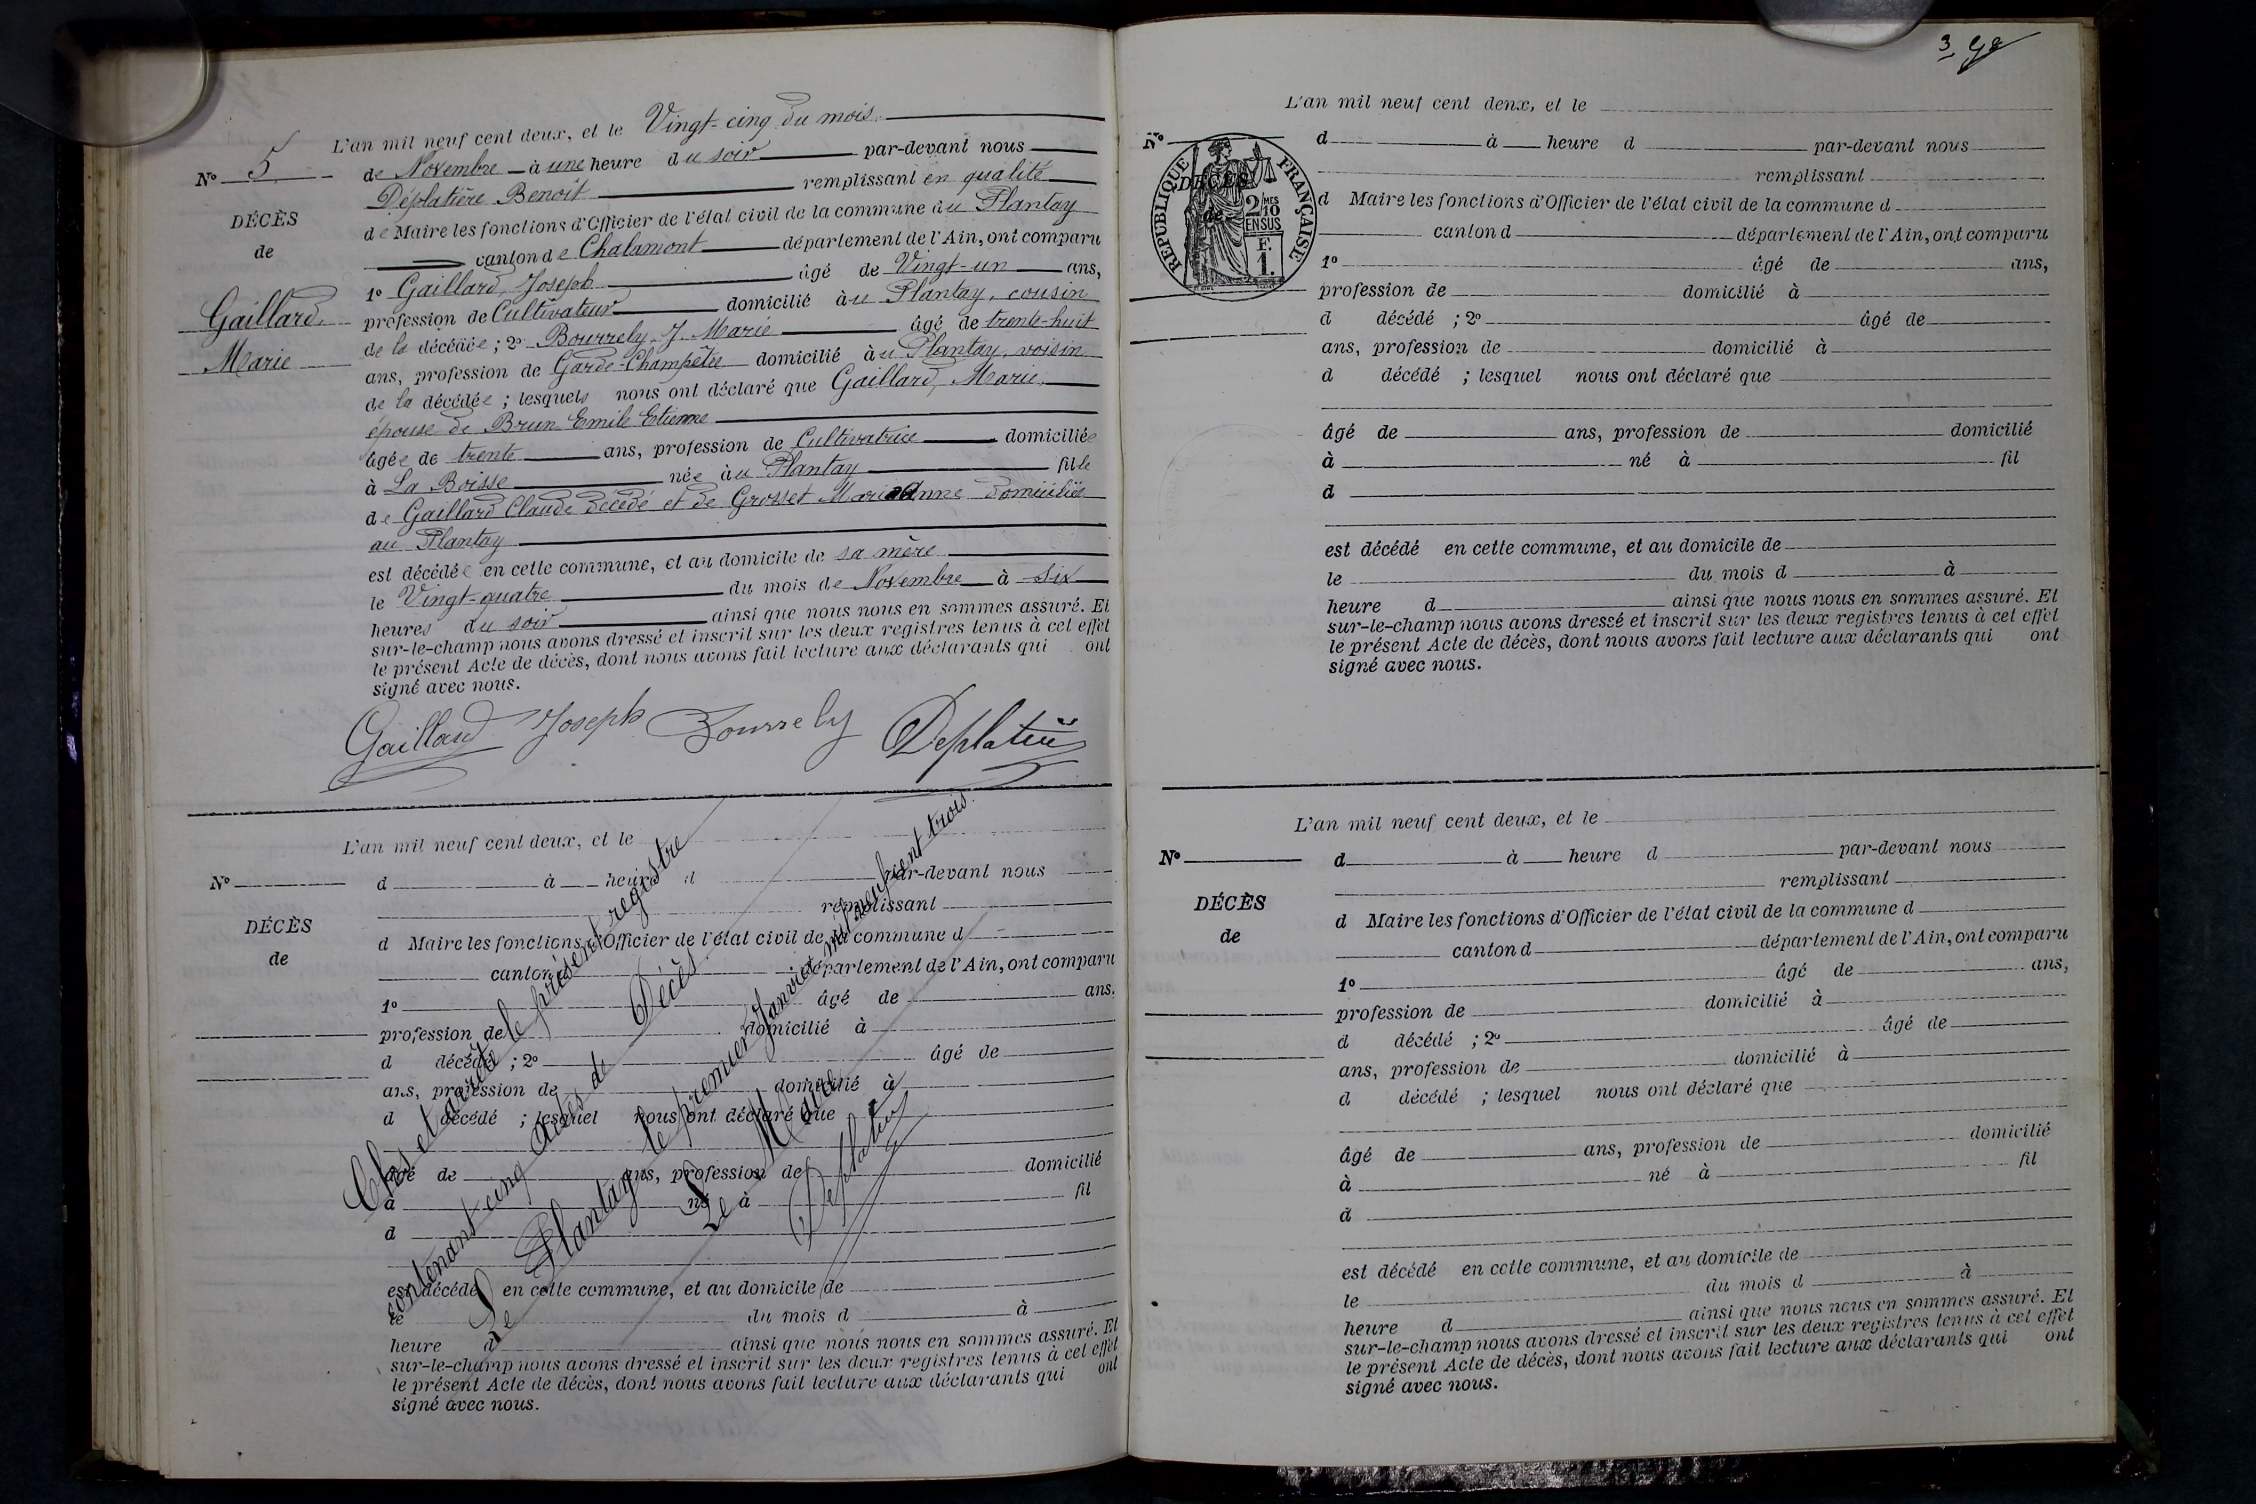 L'an mil neuf cent deux, et le Vingt-cinq du mois
N° 5
de Novembre à une heure du soir par-devant nous
Déplatière Benoit remplissant en qualité
DÉCÈS
de Maire les fonctions d'Officier de l'état civil de la commune du Plantay
de
canton de Chalamont département de l'Ain, ont comparu
1° Gaillard Joseph âgé de Vingt-un ans,
Gaillard,
profession de Cultivateur domicilié au Plantay, cousin
de la décédée ; 2° Bourrely J. Marie âgé de trente-huit
Marie
ans, profession de Garde-Champêtre domicilié au Plantay, voisin
de la décédée ; lesquels nous ont déclaré que Gaillard, Marie,
épouse de Brun Emile Etienne
âgée de trente ans, profession de Cultivatrice domiciliée
à La Boisse née au Plantay fille
de Gaillard Claude décédé et de Grosset Marie Anne domiciliée
au Plantay
est décédée en cette commune, et au domicile de sa mère
le Vingt-quatre du mois de Novembre à six
heures du soir ainsi que nous nous en sommes assuré. Et
sur-le-champ nous avons dressé et inscrit sur les deux registres tenus à cet effet
le présent Acte de décès, dont nous avons fait lecture aux déclarants qui ont
signé avec nous.
Gaillard Joseph Bourrely Deplatière
L'an mil neuf cent deux, et le
N°
d à heure d par-devant nous
remplissant
DÉCÈS
d Maire les fonctions d'Officier de l'état civil de la commune d
de
canton d département de l'Ain, ont comparu
1° âgé de ans,
profession de domicilié à
d décédé ; 2° âgé de
ans, profession de domicilié à
d décédé ; lesquel nous ont déclaré que
âgé de ans, profession de domicilié
à né à fil
d
est décédé en cette commune, et au domicile de
le du mois d à
heure d ainsi que nous nous en sommes assuré. Et
sur-le-champ nous avons dressé et inscrit sur les deux registres tenus à cet effet
le présent Acte de décès, dont nous avons fait lecture aux déclarants qui ont
signé avec nous.
Clos et arrêté le présent registre
contenant cinq actes de Décès
Le Plantay le premier Janvier mil neuf cent trois.
Le Maire
Deplatière
3
L'an mil neuf cent deux, et le
N°
d à heure d par-devant nous
remplissant
DÉCÈS
de
RÉPUBLIQUE FRANÇAISE
2 MES
10
EN SUS
F.
1.
d Maire les fonctions d'Officier de l'état civil de la commune d
canton d département de l'Ain, ont comparu
1° âgé de ans,
profession de domicilié à
d décédé ; 2° âgé de
ans, profession de domicilié à
d décédé ; lesquel nous ont déclaré que
âgé de ans, profession de domicilié
à né à fil
d
est décédé en cette commune, et au domicile de
le du mois d à
heure d ainsi que nous nous en sommes assuré. Et
sur-le-champ nous avons dressé et inscrit sur les deux registres tenus à cet effet
le présent Acte de décès, dont nous avons fait lecture aux déclarants qui ont
signé avec nous.
L'an mil neuf cent deux, et le
N°
d à heure d par-devant nous
remplissant
DÉCÈS
d Maire les fonctions d'Officier de l'état civil de la commune d
de
canton d département de l'Ain, ont comparu
1° âgé de ans,
profession de domicilié à
d décédé ; 2° âgé de
ans, profession de domicilié à
d décédé ; lesquel nous ont déclaré que
âgé de ans, profession de domicilié
à né à fil
d
est décédé en cette commune, et au domicile de
le du mois d à
heure d ainsi que nous nous en sommes assuré. Et
sur-le-champ nous avons dressé et inscrit sur les deux registres tenus à cet effet
le présent Acte de décès, dont nous avons fait lecture aux déclarants qui ont
signé avec nous.